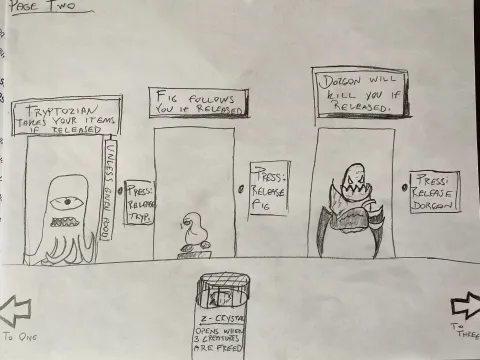 PAGE TWO
TRYPTOZIAN
TAKES YOUR ITEMS
IF RELEASED
UNLESS GIVEN FOOD
PRESS:
RELEASE
TRYP.
FIG FOLLOWS
YOU IF RELEASED
PRESS:
RELEASE
FIG
DORGON WILL
KILL YOU IF
RELEASED.
PRESS:
RELEASE
DORGON
Z-CRYSTAL
OPENS WHEN
3 CREATURES
ARE FREED
TO ONE
TO THREE